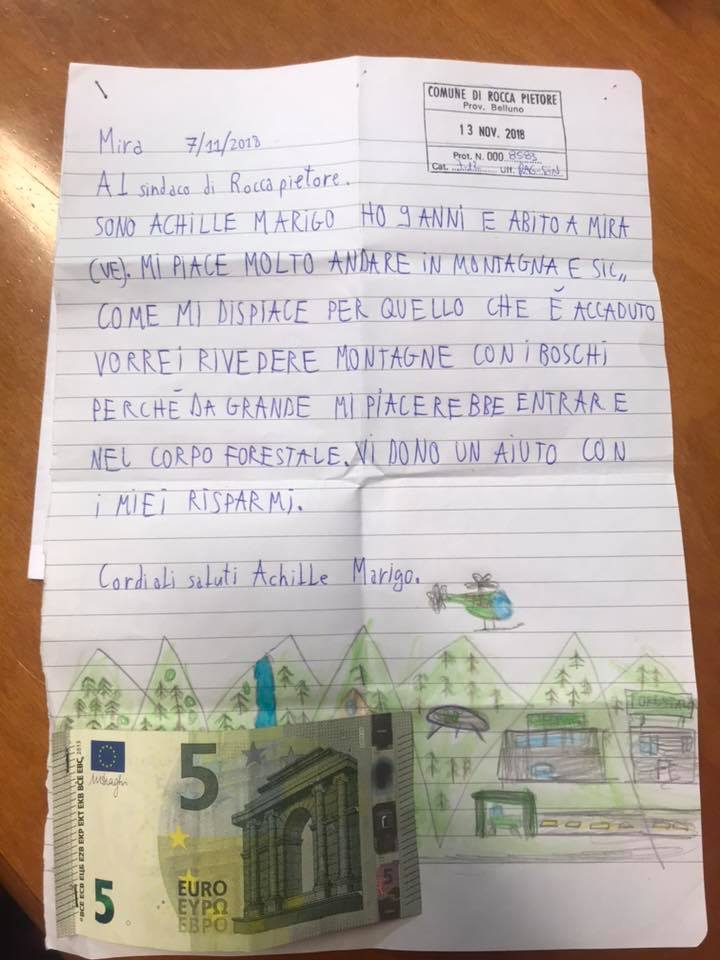 COMUNE DI ROCCA PIETORE
Prov. Belluno
13 NOV. 2018
Prot. N. 000 8583
Cat. Uff.
Mira 7/11/2018
Al sindaco di Roccapietore.
SONO ACHILLE MARIGO HO 9 ANNI E ABITO A MIRA
(VE). MI PIACE MOLTO ANDARE IN MONTAGNA E SIC,,
COME MI DISPIACE PER QUELLO CHE È ACCADUTO
VORREI RIVEDERE MONTAGNE CON I BOSCHI
PERCHÉ DA GRANDE MI PIACEREBBE ENTRARE
NEL CORPO FORESTALE. VI DONO UN AIUTO CON
I MIEI RISPARMI.
Cordiali saluti Achille Marigo.
FORESTALE
BCE ECB ЕЦБ EZB EKP EKT EKB BĊE EBC 2013
5
5
EURO
ΕΥΡΩ
ЕВРО
5